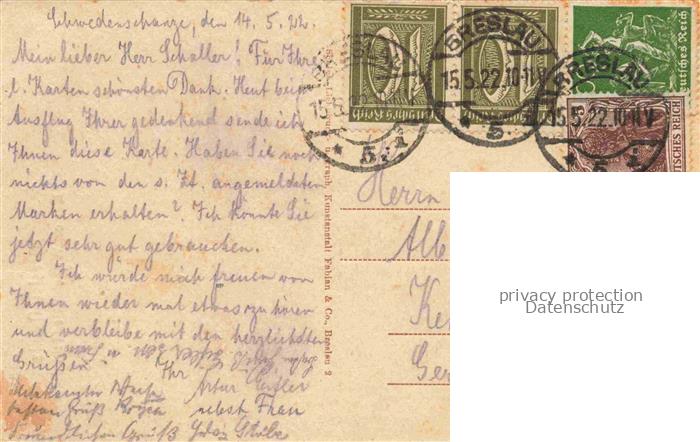 Schwedenschanze, den 14. 5. 22.
Mein lieber Herr Schaller! Für Ihre
l. Karten schönsten Dank. Heut beim
Ausflug Ihrer gedenkend sende ich
Ihnen diese Karte. Haben Sie noch
nichts von den s. Zt. angemeldeten
Marken erhalten? Ich könnte Sie
jetzt sehr gut gebrauchen.
Ich würde mich freuen von
Ihnen wieder mal etwas zu hören
und verbleibe mit den herzlichsten
Grüßen Ihr
Artur
nebst Frau
Gruß
Gruß
Kunstanstalt Fabian & Co., Breslau 2
Deutsches Reich
Deutsches Reich
Deutsches Reich
DEUTSCHES REICH
BRESLAU
15.5.22.10-11V
* 5 i *
BRESLAU
15.5.22.10-11V
* 5
Herrn
Alb
Ke
Ger
privacy protection
Datenschutz